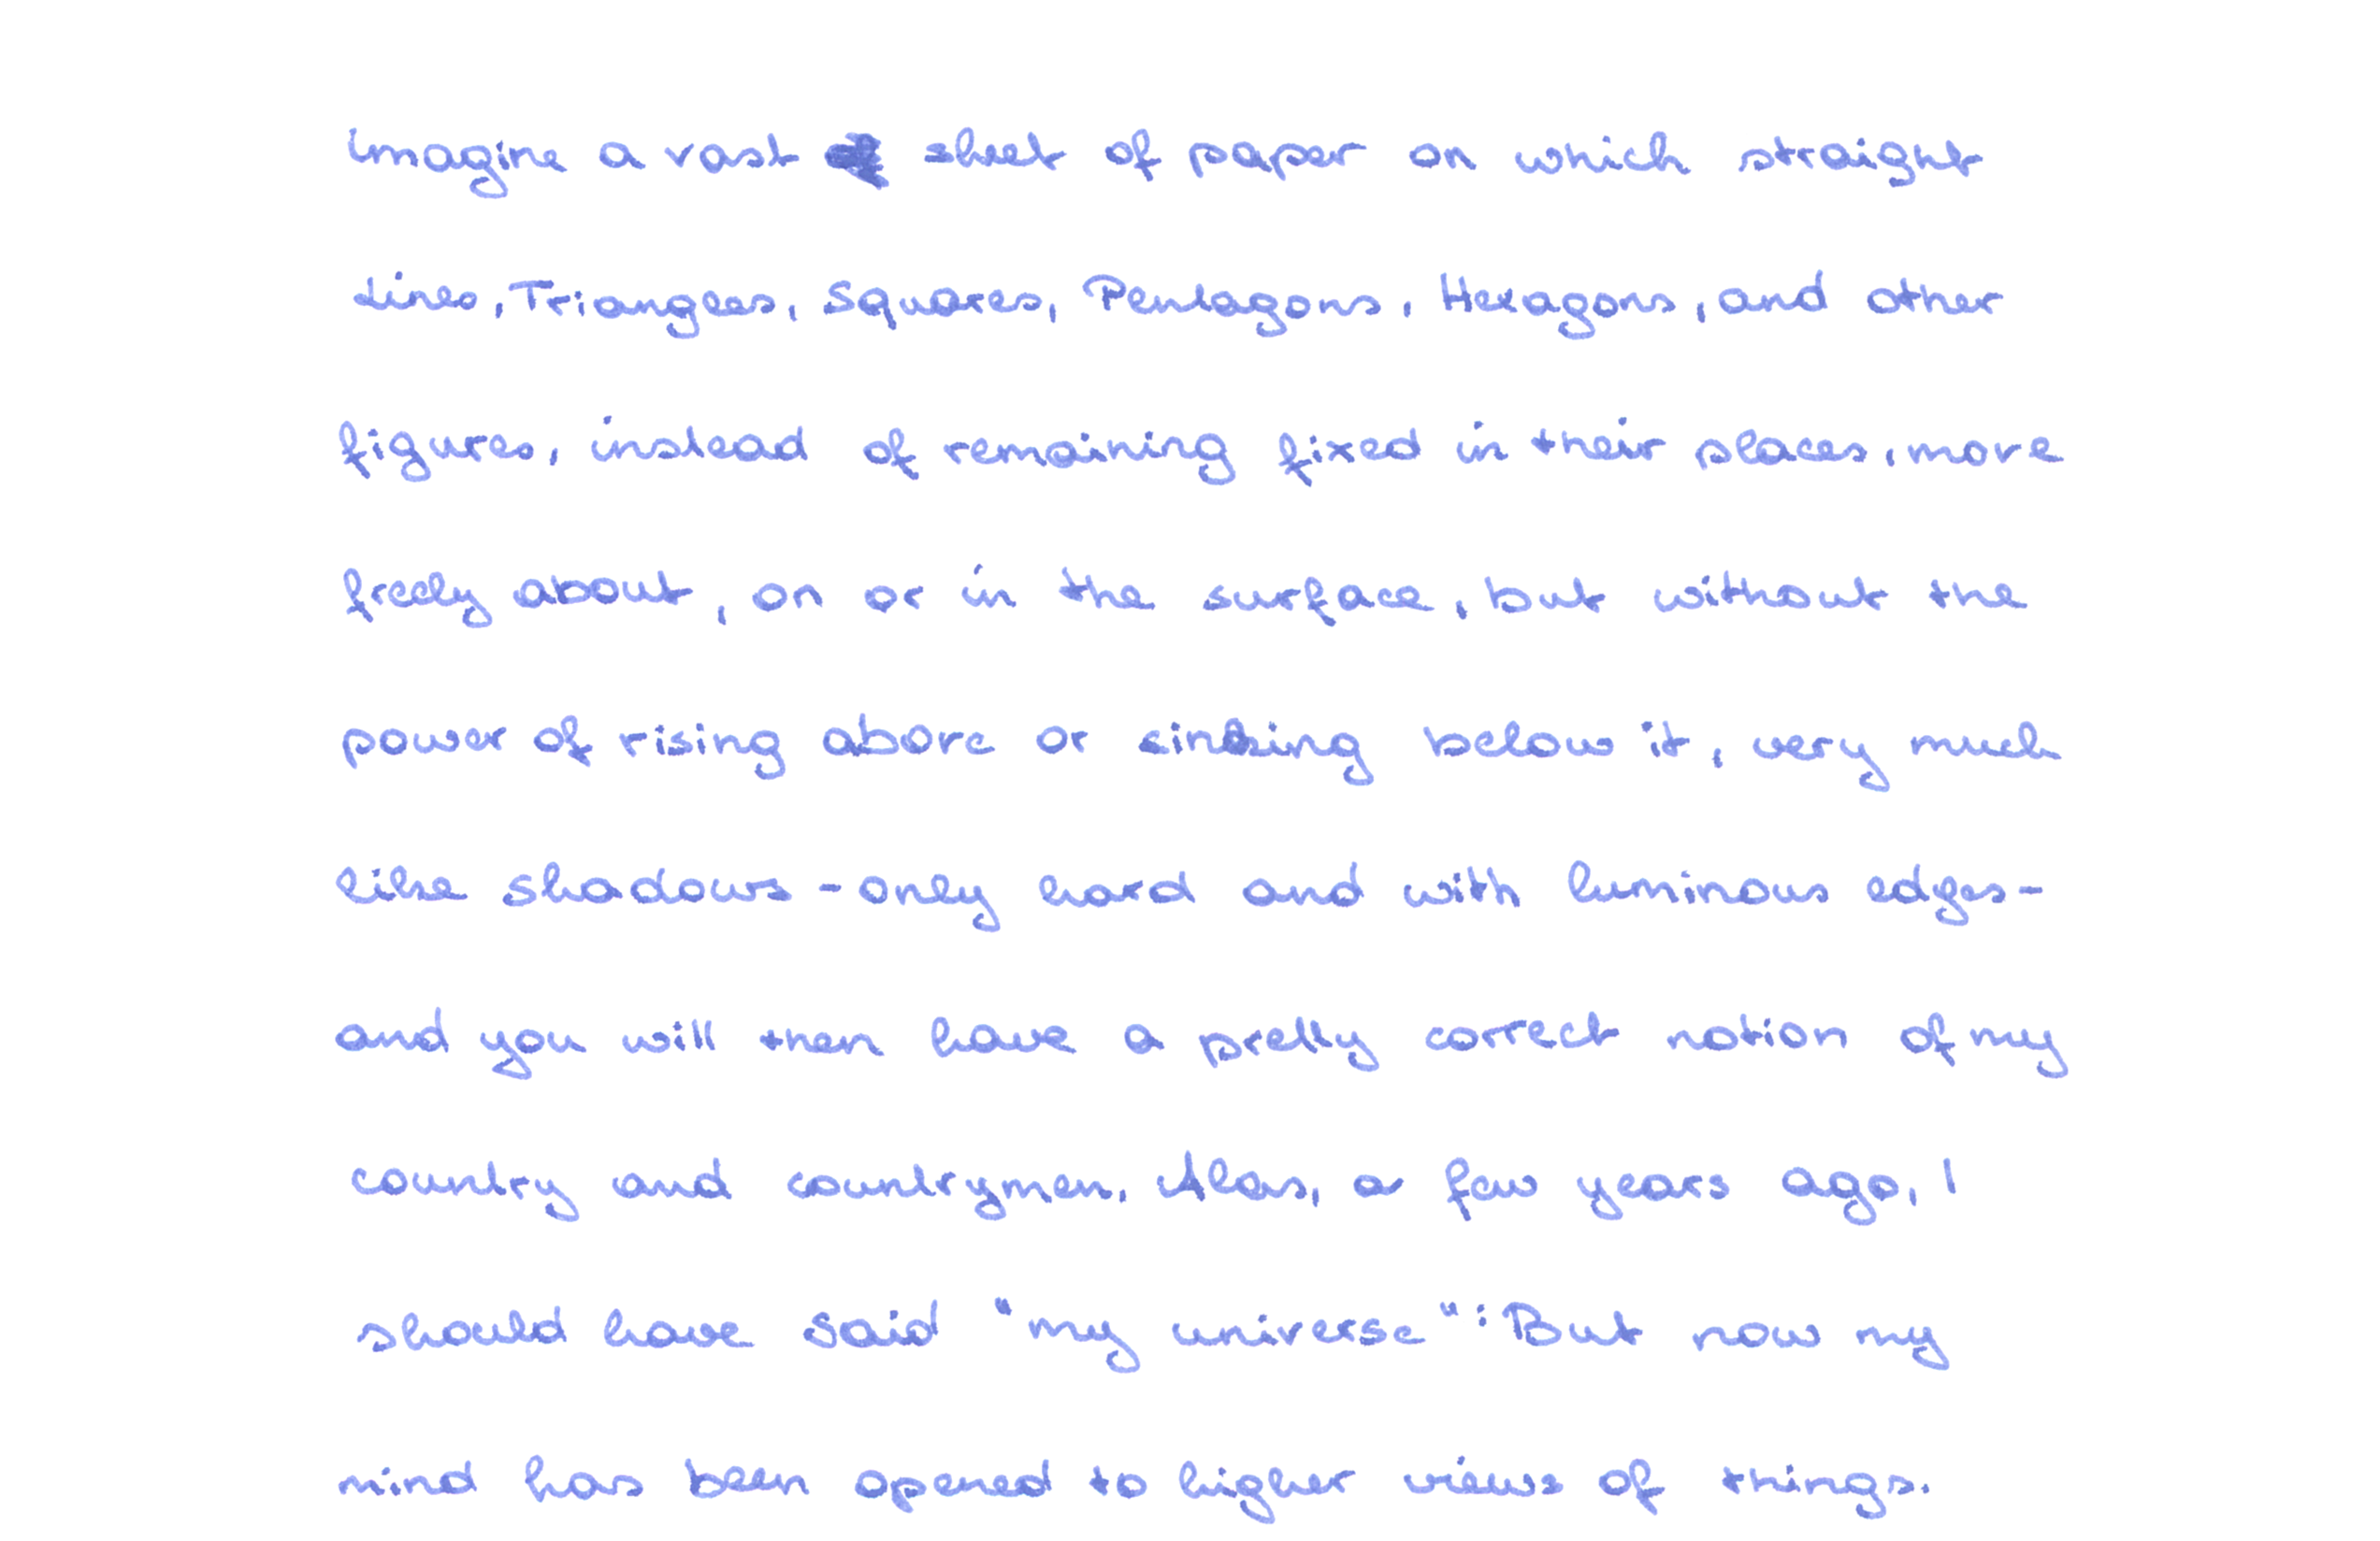 imagine a vast sheet of paper on which straight
Lines, Triangles, Squares, Pentagons, Hexagons, and other
figures, instead of remaining fixed in their places, move
freely about, on or in the surface, but without the
power of rising above or sinking below it, very much
like shadows - only hard and with luminous edges -
and you will then have a pretty correct notion of my
country and countrymen. Alas, a few years ago, I
should have said "my universe": But now my
mind has been opened to higher views of things.